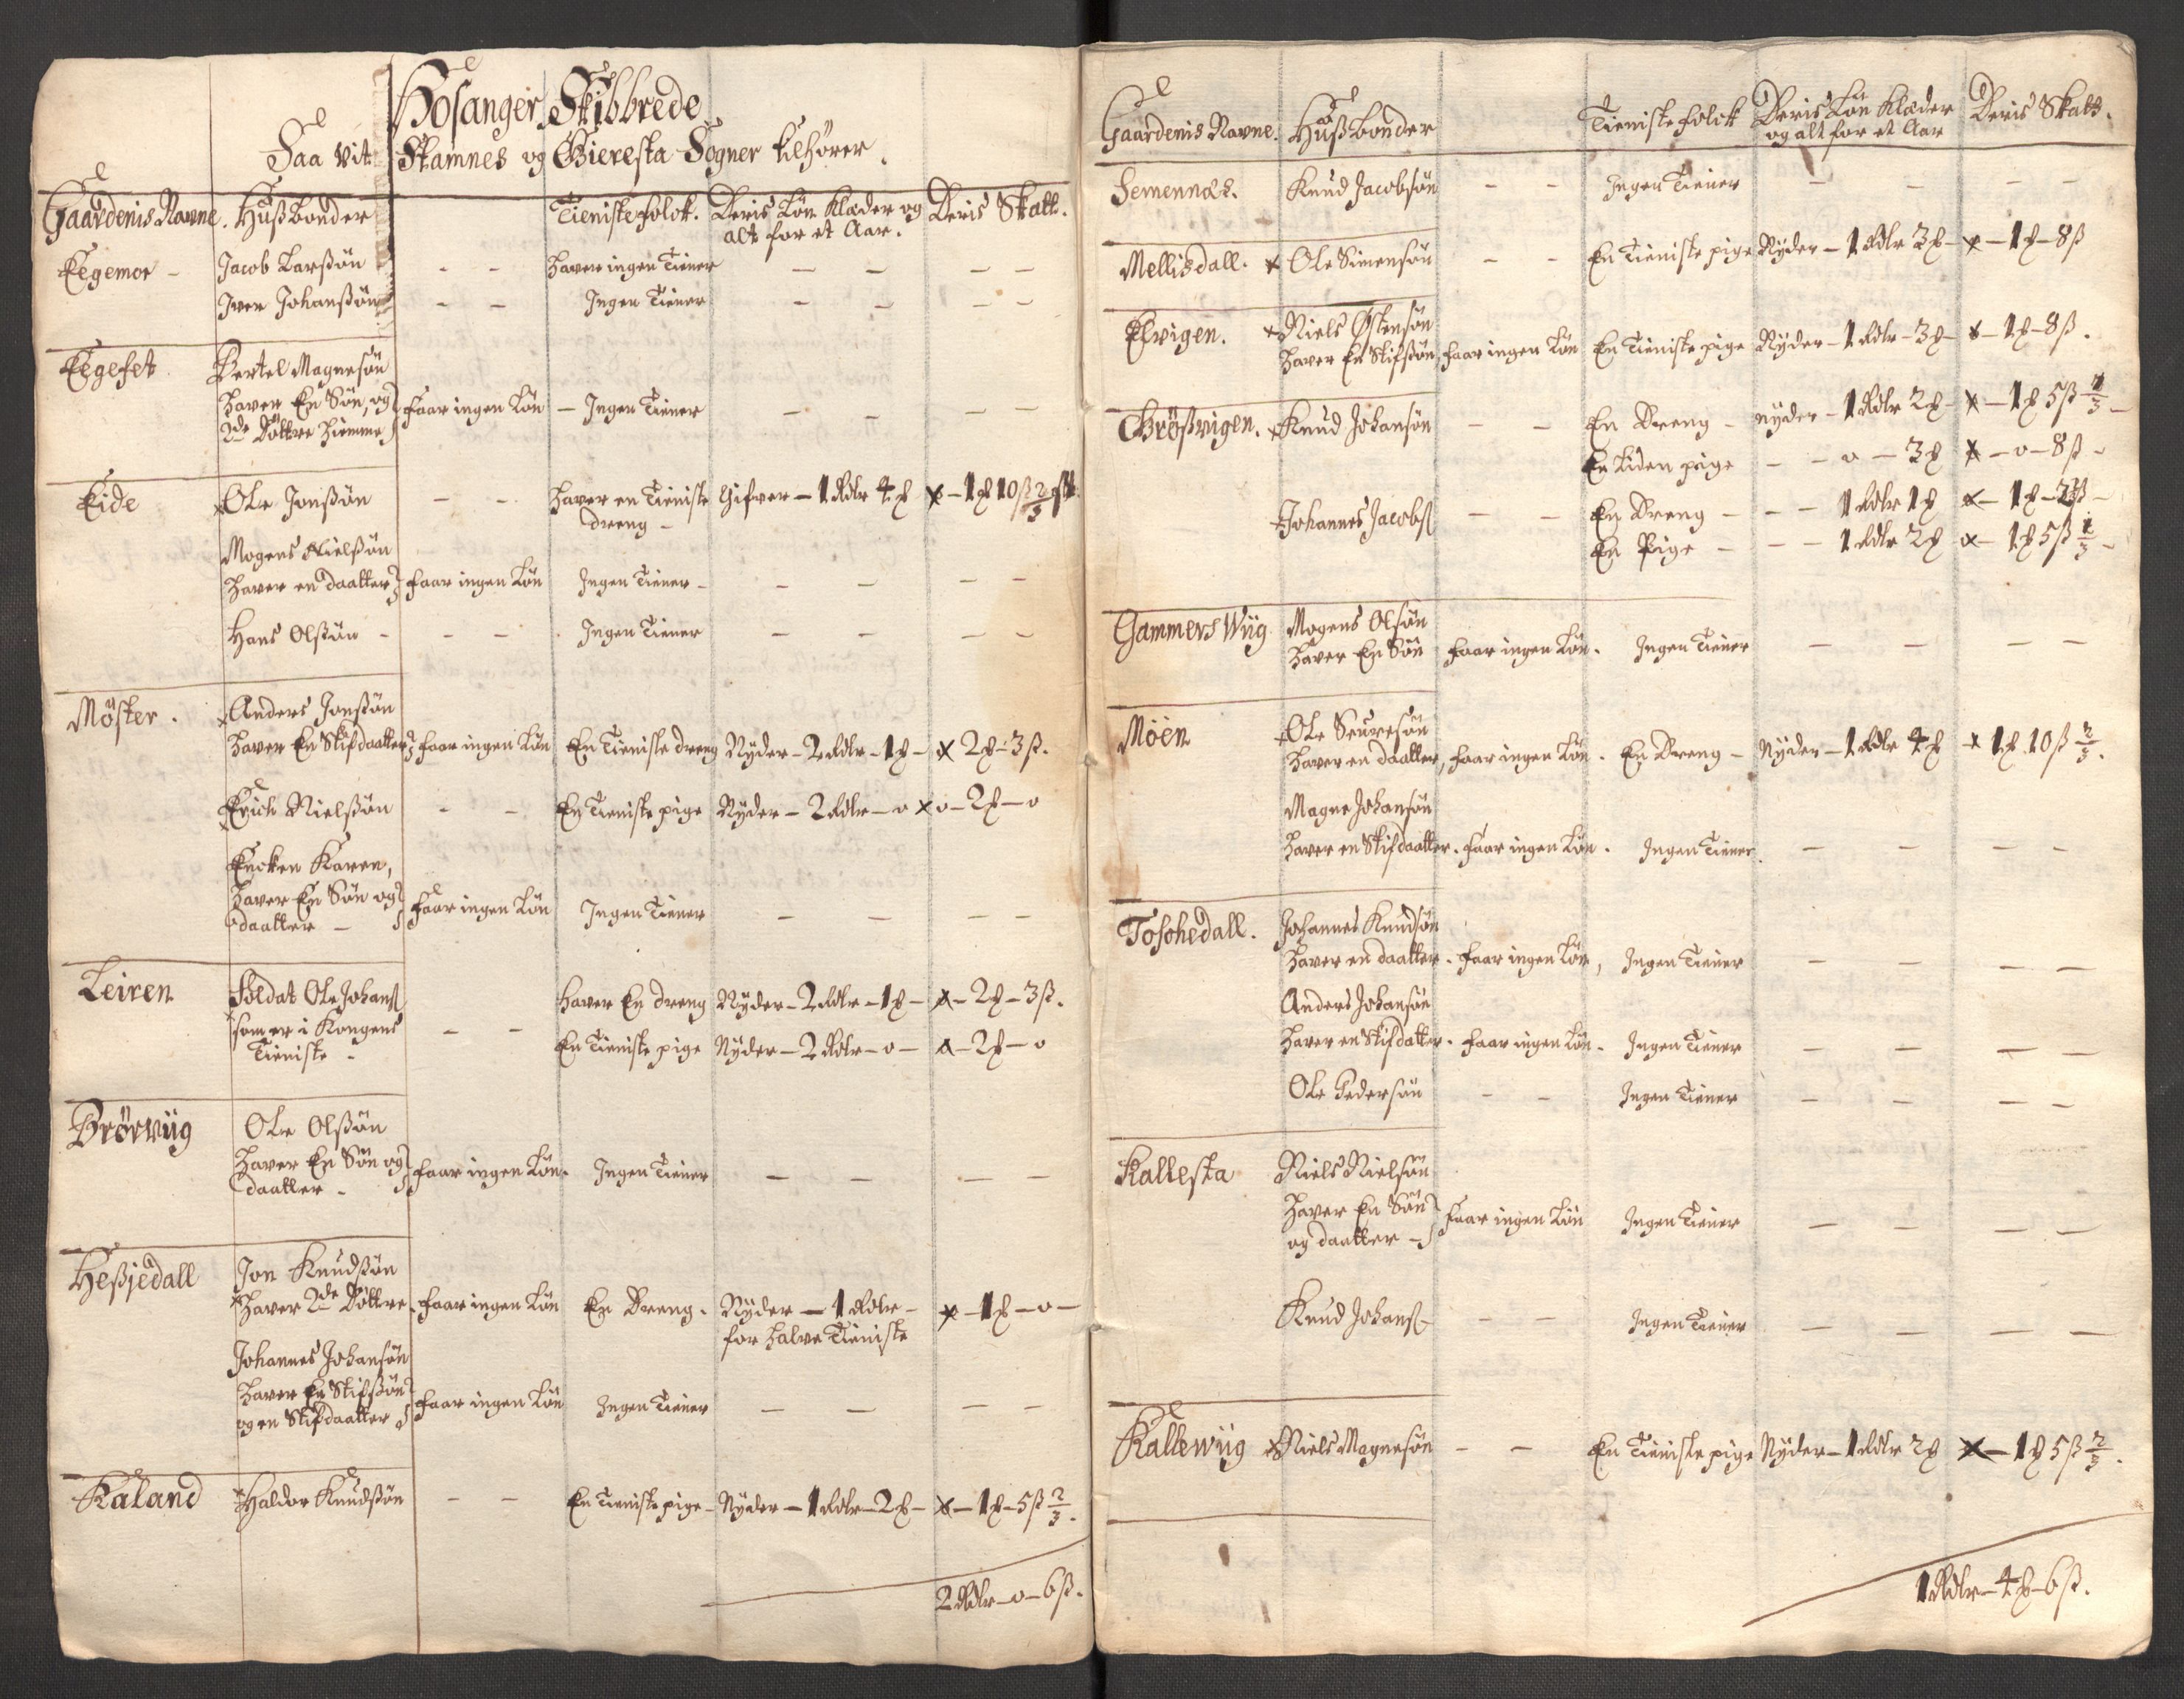 Hosanger Skibbrede
Saa vit Skamnes og Gieresta Sogner tilhører.
Gaardenis Navne. Hußbonder Tieniste folck. Deris Løn Klæder og Deris Skatt.
alt for et Aar.
Eegemoe - Jacob Larßøn - - haver ingen Tiener - - - -
Iver Johanßøn - - Ingen Tiener - - - -
Eegeset Bertel Magnesøn
haver En Søn, og faar ingen Løn - Ingen Tiener - - - -
2de Døttre hiemme
Eide x Ole Jonßøn - - haver en Tieniste Gifver - 1 Rdlr 4 ℔ x - 1 ℔ 10 ß 2/3
dreng -
Mogens Nielßøn
haver en daatter faar ingen Løn Ingen Tiener - - - - -
Hans Olßøn - - - Ingen Tiener - - - -
Møster. x Anders Jonßøn
haver En Stifdaatter faar ingen Løn En Tieniste dreng Nyder - 2 Rdlr - 1 ℔ - x 2 ℔ - 3 ß.
x Erich Nielßøn - - En Tieniste pige Nyder - 2 Rdlr - o x o - 2 ℔ - o
Encken Karen,
haver En Søn og faar ingen Løn Ingen Tiener - - - -
daatter -
Leiren Soldat Ole Johanß haver En dreng Nyder - 2 Rdlr - 1 ℔ - x - 2 ℔ - 3 ß.
x som er i Kongens - -
Tieniste - En Tieniste pige Nyder - 2 Rdlr - o - x - 2 ℔ - o
Brørviig Ole Olßøn
haver En Søn og faar ingen Løn. Ingen Tiener - - - -
daatter -
Heßjedall Jon Knudßøn
x haver 2de Døttre. faar ingen Løn En Dreng. Nyder - 1 Rdlr - x - 1 ℔ - o -
for halve Tieniste
Johannes Johansøn
haver En Stifsøn faar ingen Løn Ingen Tiener - - - -
og en Stifdaatter
Kaland x Haldor Knudßøn - - En Tieniste pige - Nyder - 1 Rdlr - 2 ℔ - x - 1 ℔ - 5 ß 2/3.
2 Rdlr - o - 6 ß.
Gaardenis Navne. Hußbonder Tieniste folck Deris Løn Klæder Deris Skatt.
og alt for et Aar
Semennæs. Knud Jacobsøn - - Ingen Tiener - - - -
Mellisdall. x Ole Simensøn - - En Tieniste pige Nyder - 1 Rdlr 3 ℔ - x - 1 ℔ - 8 ß
Elvigen. x Niels Østensøn
haver En Stifsøn, faar ingen Løn En Tieniste pige Nyder - 1 Rdlr - 3 ℔ - x - 1 ℔ - 8 ß.
Brøßvigen. x Knud Johansøn - - En Dreng - nyder - 1 Rdlr 2 ℔ - x - 1 ℔ 5 ß 1/3 -
En liden pige - - o - 3 ℔ x - o - 8 ß -
x Johannes Jacobß - - En Dreng - - - 1 Rdlr 1 ℔ x - 1 ℔ - ß -
En Pige - - - 1 Rdlr 2 ℔ x - 1 ℔ 5 ß 1/3 -
Gammers Wiig Mogens Olsøn
haver En Søn faar ingen Løn. Ingen Tiener - - - -
Moen x Ole Seuresøn
haver en daatter, faar ingen Løn. En Dreng - Nyder - 1 Rdlr 4 ℔ x 1 ℔ 10 ß 2/3.
Magne Johansøn
haver en Stifdaatter. faar ingen Løn. Ingen Tiener. - - - -
Toschedall. Johannes Knudsøn
haver en daatter. faar ingen Løn, Ingen Tiener - - - -
Anders Johansøn
haver en Stifdatter. faar ingen Løn. Ingen Tiener - - - -
Ole Pedersøn - - Ingen Tiener - - - -
Kallesta Niels Nielsøn
haver En Søn faar ingen Løn Ingen Tiener - - - -
og daatter -
Knud Johanß - - Ingen Tiener - - - -
Kallewiig x Niels Magnesøn - - En Tieniste pige Nyder - 1 Rdlr 2 ℔ x - 1 ℔ 5 ß 2/3.
1 Rdlr - 4 ℔ - 6 ß.